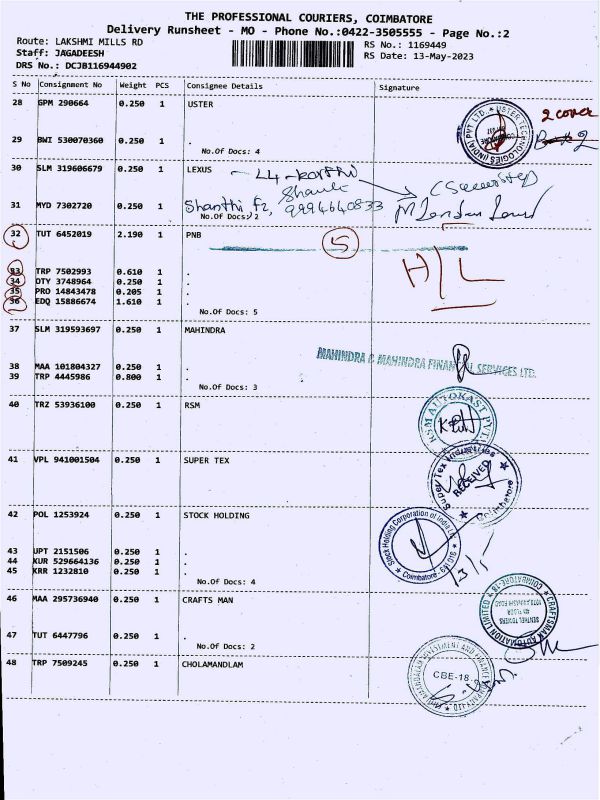 THE PROFESSIONAL COURIERS, COIMBATORE
Delivery Runsheet - MO - Phone No.:0422-3505555 - Page No.:2
Route: LAKSHMI MILLS RD
RS No.: 1169449
Staff: JAGADEESH
RS Date: 13-May-2023
DRS No.: DCJB116944902
S No Consignment No Weight PCS Consignee Details Signature
28 GPM 290664 0.250 1 USTER
USTER TECHNOLOGIES (INDIA) PVT. LTD.
2 cover
29 BWI 530070360 0.250 1 .
No.Of Docs: 4
30 SLM 319606679 0.250 1 LEXUS
31 MYD 7302720 0.250 1 .
Shanthi 9994640833
No.Of Docs: 2
32 TUT 6452019 2.190 1 PNB
5
33 TRP 7502993 0.610 1 .
34 DTY 3748964 0.250 1 .
35 PRO 14843478 0.205 1 .
36 EDQ 15886674 1.610 1 .
No.Of Docs: 5
37 SLM 319593697 0.250 1 MAHINDRA
MAHINDRA & MAHINDRA FINANCIAL SERVICES LTD.
38 MAA 101804327 0.250 1 .
39 TRP 4445986 0.800 1 .
No.Of Docs: 3
40 TRZ 53936100 0.250 1 RSM
RSM AUTOKAST PVT.
41 VPL 941001504 0.250 1 SUPER TEX
Super Tex Industries
RECEIVED
Coimbatore
42 POL 1253924 0.250 1 STOCK HOLDING
Stock Holding Corporation of India Ltd
Coimbatore
43 UPT 2151506 0.250 1 .
44 KUR 529664136 0.250 1 .
45 KRR 1232810 0.250 1 .
No.Of Docs: 4
46 MAA 295736940 0.250 1 CRAFTS MAN
CRAFTSMAN AUTOMATION LIMITED
COIMBATORE-18
SENTHEL TOWERS
4th FLOOR
47 TUT 6447796 0.250 1 .
No.Of Docs: 2
48 TRP 7509245 0.250 1 CHOLAMANDLAM
CHOLAMANDALAM INVESTMENT AND FINANCE COMPANY LTD
CBE-18